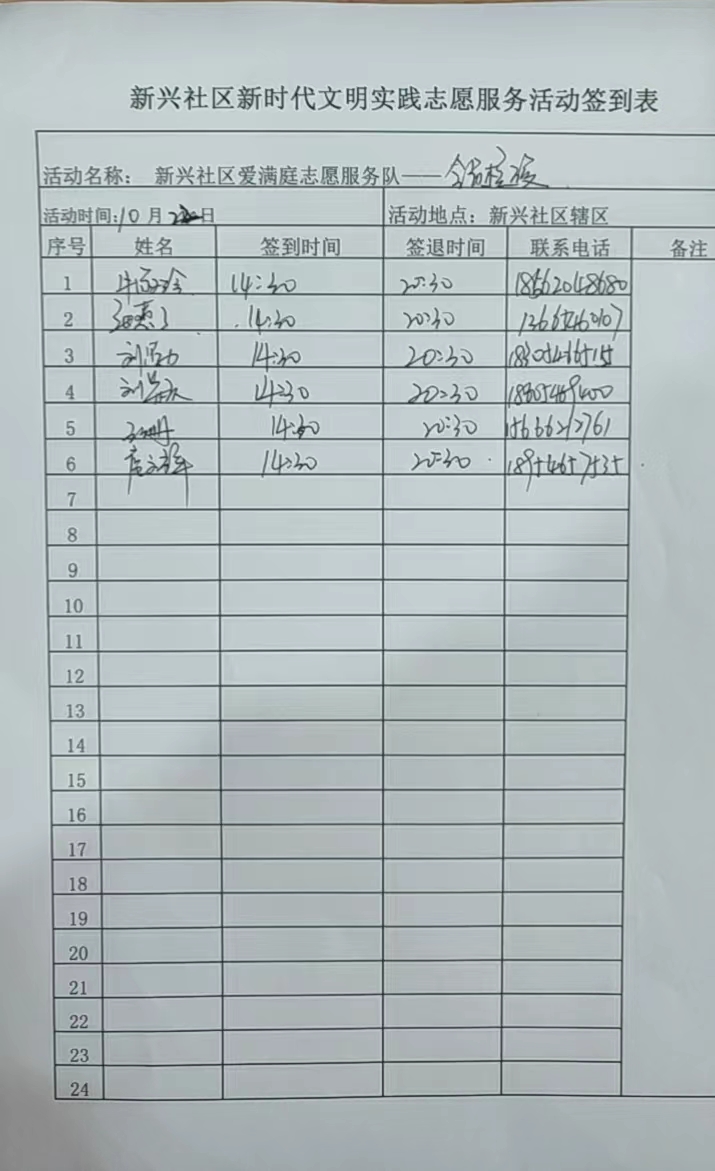 新兴社区新时代文明实践志愿服务活动签到表
活动名称： 新兴社区爱满庭志愿服务队——全员检凝
活动时间:10月 日 活动地点：新兴社区辖区
序号 姓名 签到时间 签退时间 联系电话 备注
1 14:30 20:30 18662048680
2 14:30 20:30
3 刘 14:30 20:30
4 刘 14:30 20:30
5 14:30 20:30 15666212761
6 14:30 20:30 18954657535
7
8
9
10
11
12
13
14
15
16
17
18
19
20
21
22
23
24